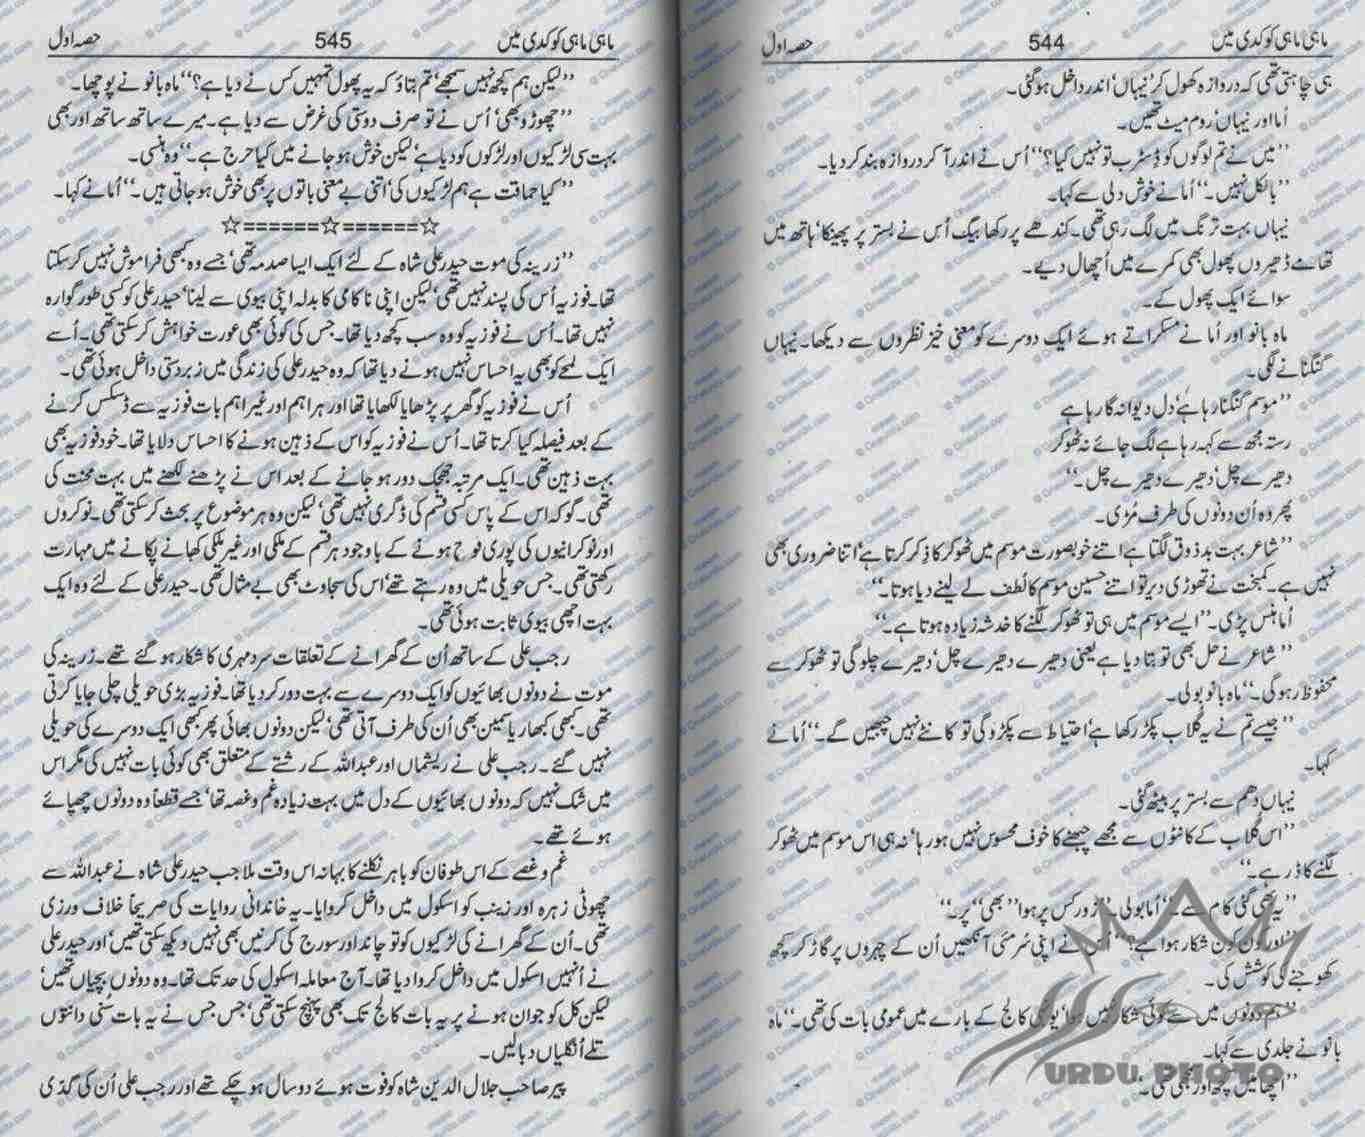 ماہی ماہی کوکدی میں 544 حصہ اول
ہی چاہتی تھی کہ دروازہ کھول کر ’نیہاں‘ اندر داخل ہوگئی۔
اُما اور نیہاں ’روم میٹ تھیں۔
’’میں نے تم لوگوں کو ڈسٹرب تو نہیں کیا؟‘‘ اُس نے اندر آ کر دروازہ بند کر دیا۔
’’بالکل نہیں۔‘‘ اُما نے خوش دلی سے کہا۔
نیہاں بہت ترنگ میں لگ رہی تھی۔ کندھے پر رکھا بیگ اُس نے بستر پر پھینکا‘ ہاتھ میں
تھامے ڈھیروں پھول بھی کمرے میں اُچھال دیے۔
سوائے ایک پھول کے۔
ماہ بانو اور اُما نے مسکراتے ہوئے ایک دوسرے کو معنی خیز نظروں سے دیکھا۔ نیہاں
گنگنانے لگی۔
’’موسم گنگنا رہا ہے‘ دل دیوانہ گا رہا ہے
رستہ مجھ سے کہہ رہا ہے لگ جائے نہ ٹھوکر
دھیرے چل‘ دھیرے دھیرے چل۔‘‘
پھر وہ اُن دونوں کی طرف مُڑی۔
’’شاعر بہت بدذوق لگتا ہے اتنے خوبصورت موسم میں ٹھوکر کا ذِکر کرتا ہے‘ اتنا ضروری بھی
نہیں ہے۔ کمبخت نے تھوڑی دیر تو اتنے حسین موسم کا لُطف لے لینے دیا ہوتا۔‘‘
اُما ہنس پڑی۔ ’’ایسے موسم میں ہی تو ٹھوکر لگنے کا خدشہ زیادہ ہوتا ہے۔‘‘
’’شاعر نے حل بھی تو بتا دیا ہے یعنی دھیرے دھیرے چل‘ دھیرے چلو گی تو ٹھوکر سے
محفوظ رہو گی۔‘‘ ماہ بانو بولی۔
’’جیسے تم نے یہ گلاب پکڑ رکھا ہے‘ احتیاط سے پکڑو گی تو کانٹے نہیں چبھیں گے۔‘‘ اُما نے
کہا۔
نیہاں دھم سے بستر پر بیٹھ گئی۔
’’اس گلاب کے کانٹوں سے مجھے چبھنے کا خوف محسوس نہیں ہو رہا‘ نہ ہی اس موسم میں ٹھوکر
لگنے کا ڈر ہے۔‘‘
’’یہ بھی گئی کام سے۔‘‘ اُما بولی۔ ’’زور کس پر ہوا ’’بھی‘‘ پر۔‘‘
’’اور کون کون شکار ہوا ہے؟‘‘ اُس نے اپنی سُرمئی آنکھیں اُن کے چہروں پر گاڑ کر کچھ
کھوجنے کی کوشش کی۔
’’ہم دونوں میں سے کوئی شکار نہیں ہوا‘ یونہی کالج کے بارے میں عمومی بات کی تھی۔‘‘ ماہ
بانو نے جلدی سے کہا۔
’’اچھا میں کچھ اور سمجھی تھی۔‘‘
URDU PHOTO
ماہی ماہی کوکدی میں 545 حصہ اول
’’لیکن ہم کچھ نہیں سمجھے‘ تم بتاؤ کہ یہ پھول تمہیں کس نے دیا ہے؟‘‘ ماہ بانو نے پوچھا۔
’’چھوڑو بھی‘ اُس نے تو صرف دوستی کی غرض سے دیا ہے۔ میرے ساتھ ساتھ اور بھی
بہت سی لڑکیوں اور لڑکوں کو دیا ہے‘ لیکن خوش ہو جانے میں کیا حرج ہے۔‘‘ وہ ہنسی۔
’’کیا حماقت ہے ہم لڑکیوں کی‘ اتنی بے معنی باتوں پر بھی خوش ہو جاتی ہیں۔‘‘ اُما نے کہا۔
☆======☆======☆
’’زرینہ کی موت حیدر علی شاہ کے لئے ایک ایسا صدمہ تھی‘ جسے وہ کبھی فراموش نہیں کر سکتا
تھا۔ فوزیہ اُس کی پسند نہیں تھی‘ لیکن اپنی ناکامی کا بدلہ اپنی بیوی سے لینا‘ حیدر علی کو کسی طور گوارہ
نہیں تھا۔ اُس نے فوزیہ کو وہ سب کچھ دیا تھا۔ جس کی کوئی بھی عورت خواہش کر سکتی تھی۔ اُسے
ایک لمحے کو بھی یہ احساس نہیں ہونے دیا تھا کہ وہ حیدر علی کی زندگی میں زبردستی داخل ہوئی تھی۔
اُس نے فوزیہ کو گھر پر پڑھایا لکھایا تھا اور ہر اہم اور غیر اہم بات فوزیہ سے ڈسکس کرنے
کے بعد فیصلہ کیا کرتا تھا۔ اُس نے فوزیہ کو اس کے ذہین ہونے کا احساس دلایا تھا۔ خود فوزیہ بھی
بہت ذہین تھی۔ ایک مرتبہ جھجک دور ہو جانے کے بعد اس نے پڑھنے لکھنے میں بہت محنت کی
تھی۔ گو کہ اس کے پاس کسی قسم کی ڈگری نہیں تھی‘ لیکن وہ ہر موضوع پر بحث کر سکتی تھی۔ نوکروں
اور نوکرانیوں کی پوری فوج ہونے کے باوجود ہر قسم کے ملکی اور غیر ملکی کھانے پکانے میں مہارت
رکھتی تھی۔ جس حویلی میں وہ رہتے تھے‘ اس کی سجاوٹ بھی بے مثال تھی۔ حیدر علی کے لئے وہ ایک
بہت اچھی بیوی ثابت ہوئی تھی۔
رجب علی کے ساتھ اُن کے گھرانے کے تعلقات سرد مہری کا شکار ہو گئے تھے۔ زرینہ کی
موت نے دونوں بھائیوں کو ایک دوسرے سے بہت دور کر دیا تھا۔ فوزیہ بڑی حویلی چلی جایا کرتی
تھی۔ کبھی کبھار یاسمین بھی اُن کی طرف آتی تھی‘ لیکن دونوں بھائی پھر کبھی ایک دوسرے کی حویلی
نہیں گئے۔ رجب علی نے ریشماں اور عبداللہ کے رشتے کے متعلق بھی کوئی بات نہیں کی مگر اس
میں شک نہیں کہ دونوں بھائیوں کے دل میں بہت زیادہ غم و غصہ تھا‘ جسے قطعاً وہ دونوں چھپائے
ہوئے تھے۔
غم و غصے کے اس طوفان کو باہر نکلنے کا بہانہ اس وقت ملا جب حیدر علی شاہ نے عبداللہ سے
چھوٹی زہرہ اور زینب کو اسکول میں داخل کروایا۔ یہ خاندانی روایات کی صریحاً خلاف ورزی
تھی۔ اُن کے گھرانے کی لڑکیوں کو تو چاند اور سورج کی کرنیں بھی نہیں دیکھ سکتی تھیں‘ اور حیدر علی
نے اُنہیں اسکول میں داخل کروا دیا تھا۔ آج معاملہ اسکول کی حد تک تھا۔ وہ دونوں بچیاں تھیں‘
لیکن کل کو جوان ہونے پر یہ بات کالج تک بھی پہنچ سکتی تھی‘ جس جس نے یہ بات سُنی دانتوں
تلے اُنگلیاں دبا لیں۔
پیر صاحب جلال الدین شاہ کو فوت ہوئے دو سال ہو چکے تھے اور رجب علی اُن کی گدّی